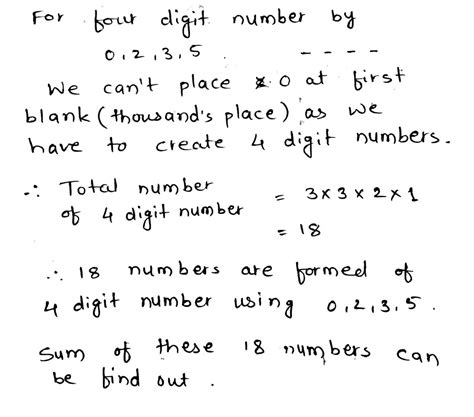 For four digit number by
0,2,3,5 . - - - -
We can't place 0 at first
blank (thousand's place) as we
have to create 4 digit numbers.
∴ Total number
of 4 digit number = 3×3×2×1
= 18
∴ 18 numbers are formed of
4 digit number using 0,2,3,5.
Sum of these 18 numbers can
be find out .